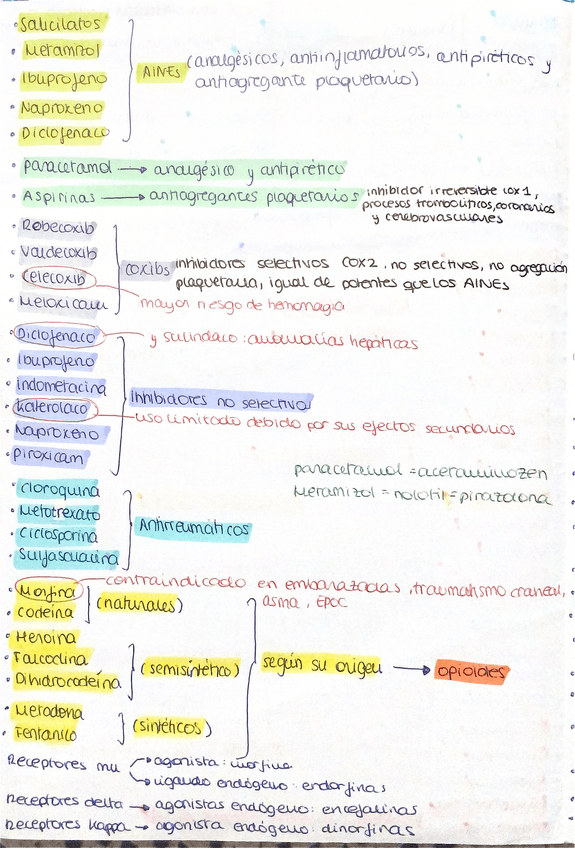 • Salicilatos
• Metamizol
• Ibuprofeno
• Naproxeno
• Diclofenaco
AINES (analgésicos, antiinflamatorios, antipiréticos y
antiagregante plaquetario)
• Paracetamol → analgésico y antipirético
• Aspirinas → antiagregantes plaquetarios inhibidor irreversible cox1,
procesos tromboliticos, coronarios
y cerebrovasculares
• Robecoxib
• Valdecoxib
• Celecoxib
• Meloxicam
coxibs inhibidores selectivos COX2, no selectivos, no agregación
plaquetaria, igual de potentes que los AINES
mayor riesgo de hemorragia
• Diclofenaco y sulindaco: anomalías hepáticas
• Ibuprofeno
• Indometacina
• Keterolaco
• Naproxeno
• Piroxicam
Inhibidores no selectivo
uso limitado debido por sus efectos secundarios
paracetamol = acetaminozen
Metamizol = nolotil = pirazolona
• Cloroquina
• Metotrexato
• Ciclosporina
• Sulfasalacina
Antirreumáticos
• Morfina contraindicado en embarazadas, traumatismo craneal,
asma, EPOC
• codeína
(naturales)
• Heroína
• Falcodina
• Dihidrocodeína
(semisintético)
• Metadona
• Fentanilo
(sintéticos)
según su origen → opioides
Receptores mu → agonista: morfina
→ ligando endógeno: endorfinas
Receptores delta → agonistas endógeno: encefalinas
Receptores kappa → agonista endógeno: dinorfinas